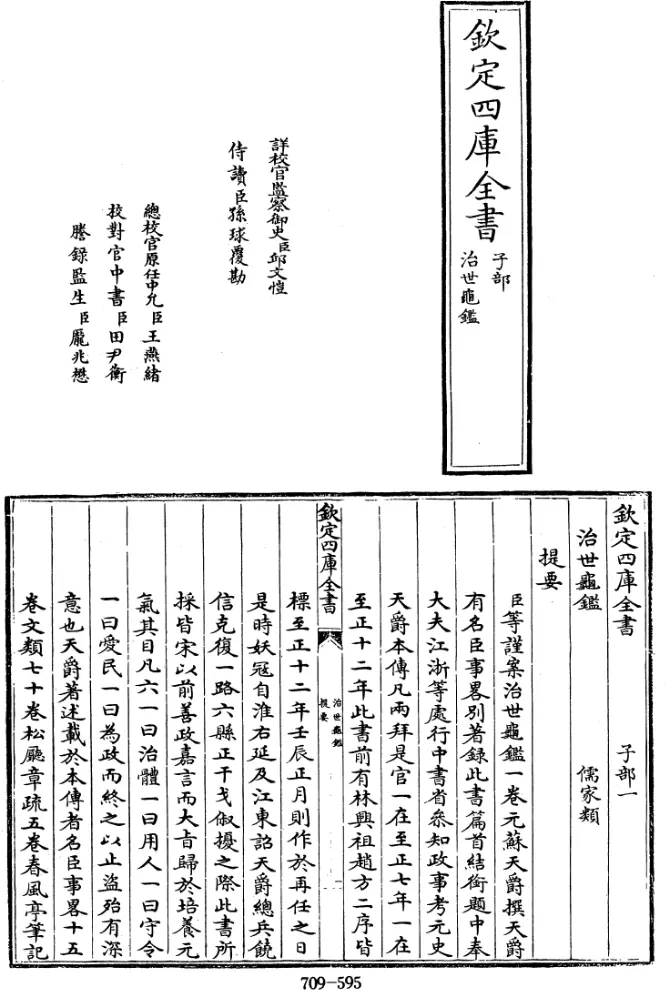 欽定四庫全書
子部
治世龜鑑
詳校官監察御史臣邱文愷
侍讀臣孫球覆勘
總校官原任中允臣王燕緒
校對官中書臣田尹衡
謄錄監生臣龐兆懋
欽定四庫全書 子部一
治世龜鑑 儒家類
提要
臣等謹案治世龜鑑一卷元蘇天爵撰天爵
有名臣事畧別著錄此書篇首結銜題中奉
大夫江浙等處行中書省叅知政事考元史
天爵本傳凡兩拜是官一在至正七年一在
至正十二年此書前有林興祖趙方二序皆
欽定四庫全書
治世龜鑑
提要
一
標至正十二年壬辰正月則作於再任之日
是時妖寇自淮右延及江東詔天爵總兵饒
信克復一路六縣正干戈俶擾之際此書所
採皆宋以前善政嘉言而大旨歸於培養元
氣其目凡六一曰治體一曰用人一曰守令
一曰愛民一曰為政而終之以止盜殆有深
意也天爵著述載於本傳者名臣事畧十五
卷文類七十卷松廳章疏五卷春風亭筆記
709-595